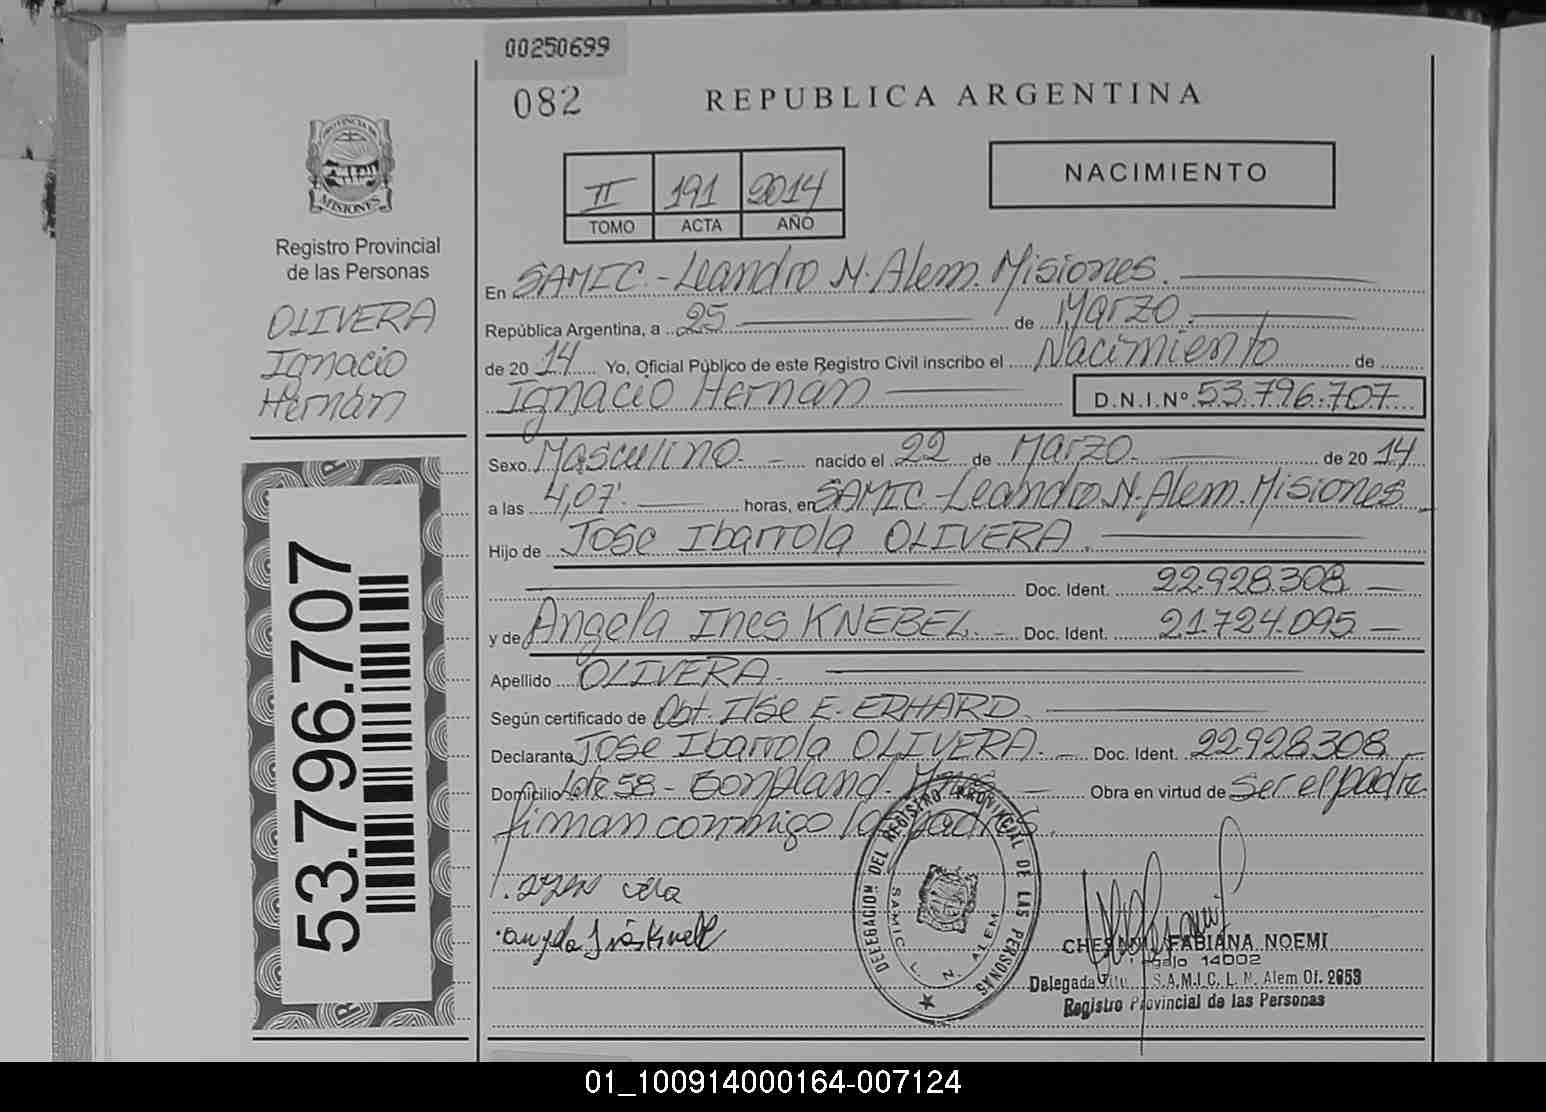 00250699
082
REPUBLICA ARGENTINA
PROVINCIA DE
MISIONES
Registro Provincial
de las Personas
II 191 2014
TOMO ACTA AÑO
NACIMIENTO
OLIVERA
Ignacio
Hernán
En SAMIC - Leandro N. Alem. Misiones.
República Argentina, a 25 de Marzo
de 2014 Yo, Oficial Público de este Registro Civil inscribo el Nacimiento de
Ignacio Hernán D.N.I.Nº 53.796.707
Sexo Masculino. - nacido el 22 de Marzo. de 2014
a las 4,07' horas, en SAMIC - Leandro N. Alem. Misiones
Hijo de Jose Ibarrola OLIVERA.
Doc. Ident. 22.928.308
y de Angela Ines KNEBEL. - Doc. Ident. 21.724.095
Apellido OLIVERA.
Según certificado de Obt. Ilse E. ERHARD.
Declarante Jose Ibarrola OLIVERA. Doc. Ident. 22.928.308
Domicilio Lote 58 - Bonpland. Mnes Obra en virtud de Ser el padre
firman conmigo los padres.
53.796.707
DELEGACION DEL REGISTRO PROVINCIAL DE LAS PERSONAS
SAMIC L. N. ALEM
FABIANA NOEMI
14002
Delegada S.A.M.I.C. L. N. Alem Of. 2053
Registro Provincial de las Personas
01_100914000164-007124